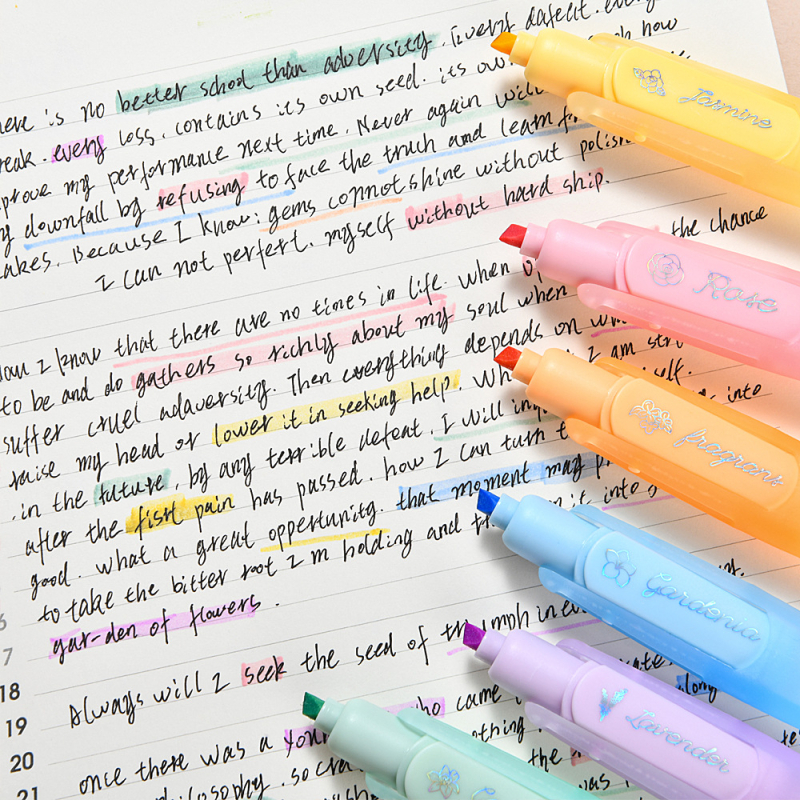 here is no better school than adversity. Every defeat. every
reak. every loss. contains its own seed. its ow how
prove my performance next time. Never again will
downfall by refusing to face the truth and learn f
akes. Because I know: gems connot shine without polish
I can not perfert. myself without hard ship.
Now I know that there are no times in life. when op the chance
to be and do gathers so richly about my soul when
suffer cruel adaversity. Then everything depends on I am str
raise my head or lower it in seeking help. Wh self.
in the tuture. by any terrible defeat. I will inq into
after the fisrt pain has passed. how I can turn t
good. what a great oppertunity. that moment may p
to take the bitter root I m holding and it into
gar-den of flowers.
17
18 Always will I seek the seed of triumph in ev
19
20 once there was a who came long
21 philosophy. socra nothing. the
was
Jasmine
Rose
fragrant
Gardenia
Lavender